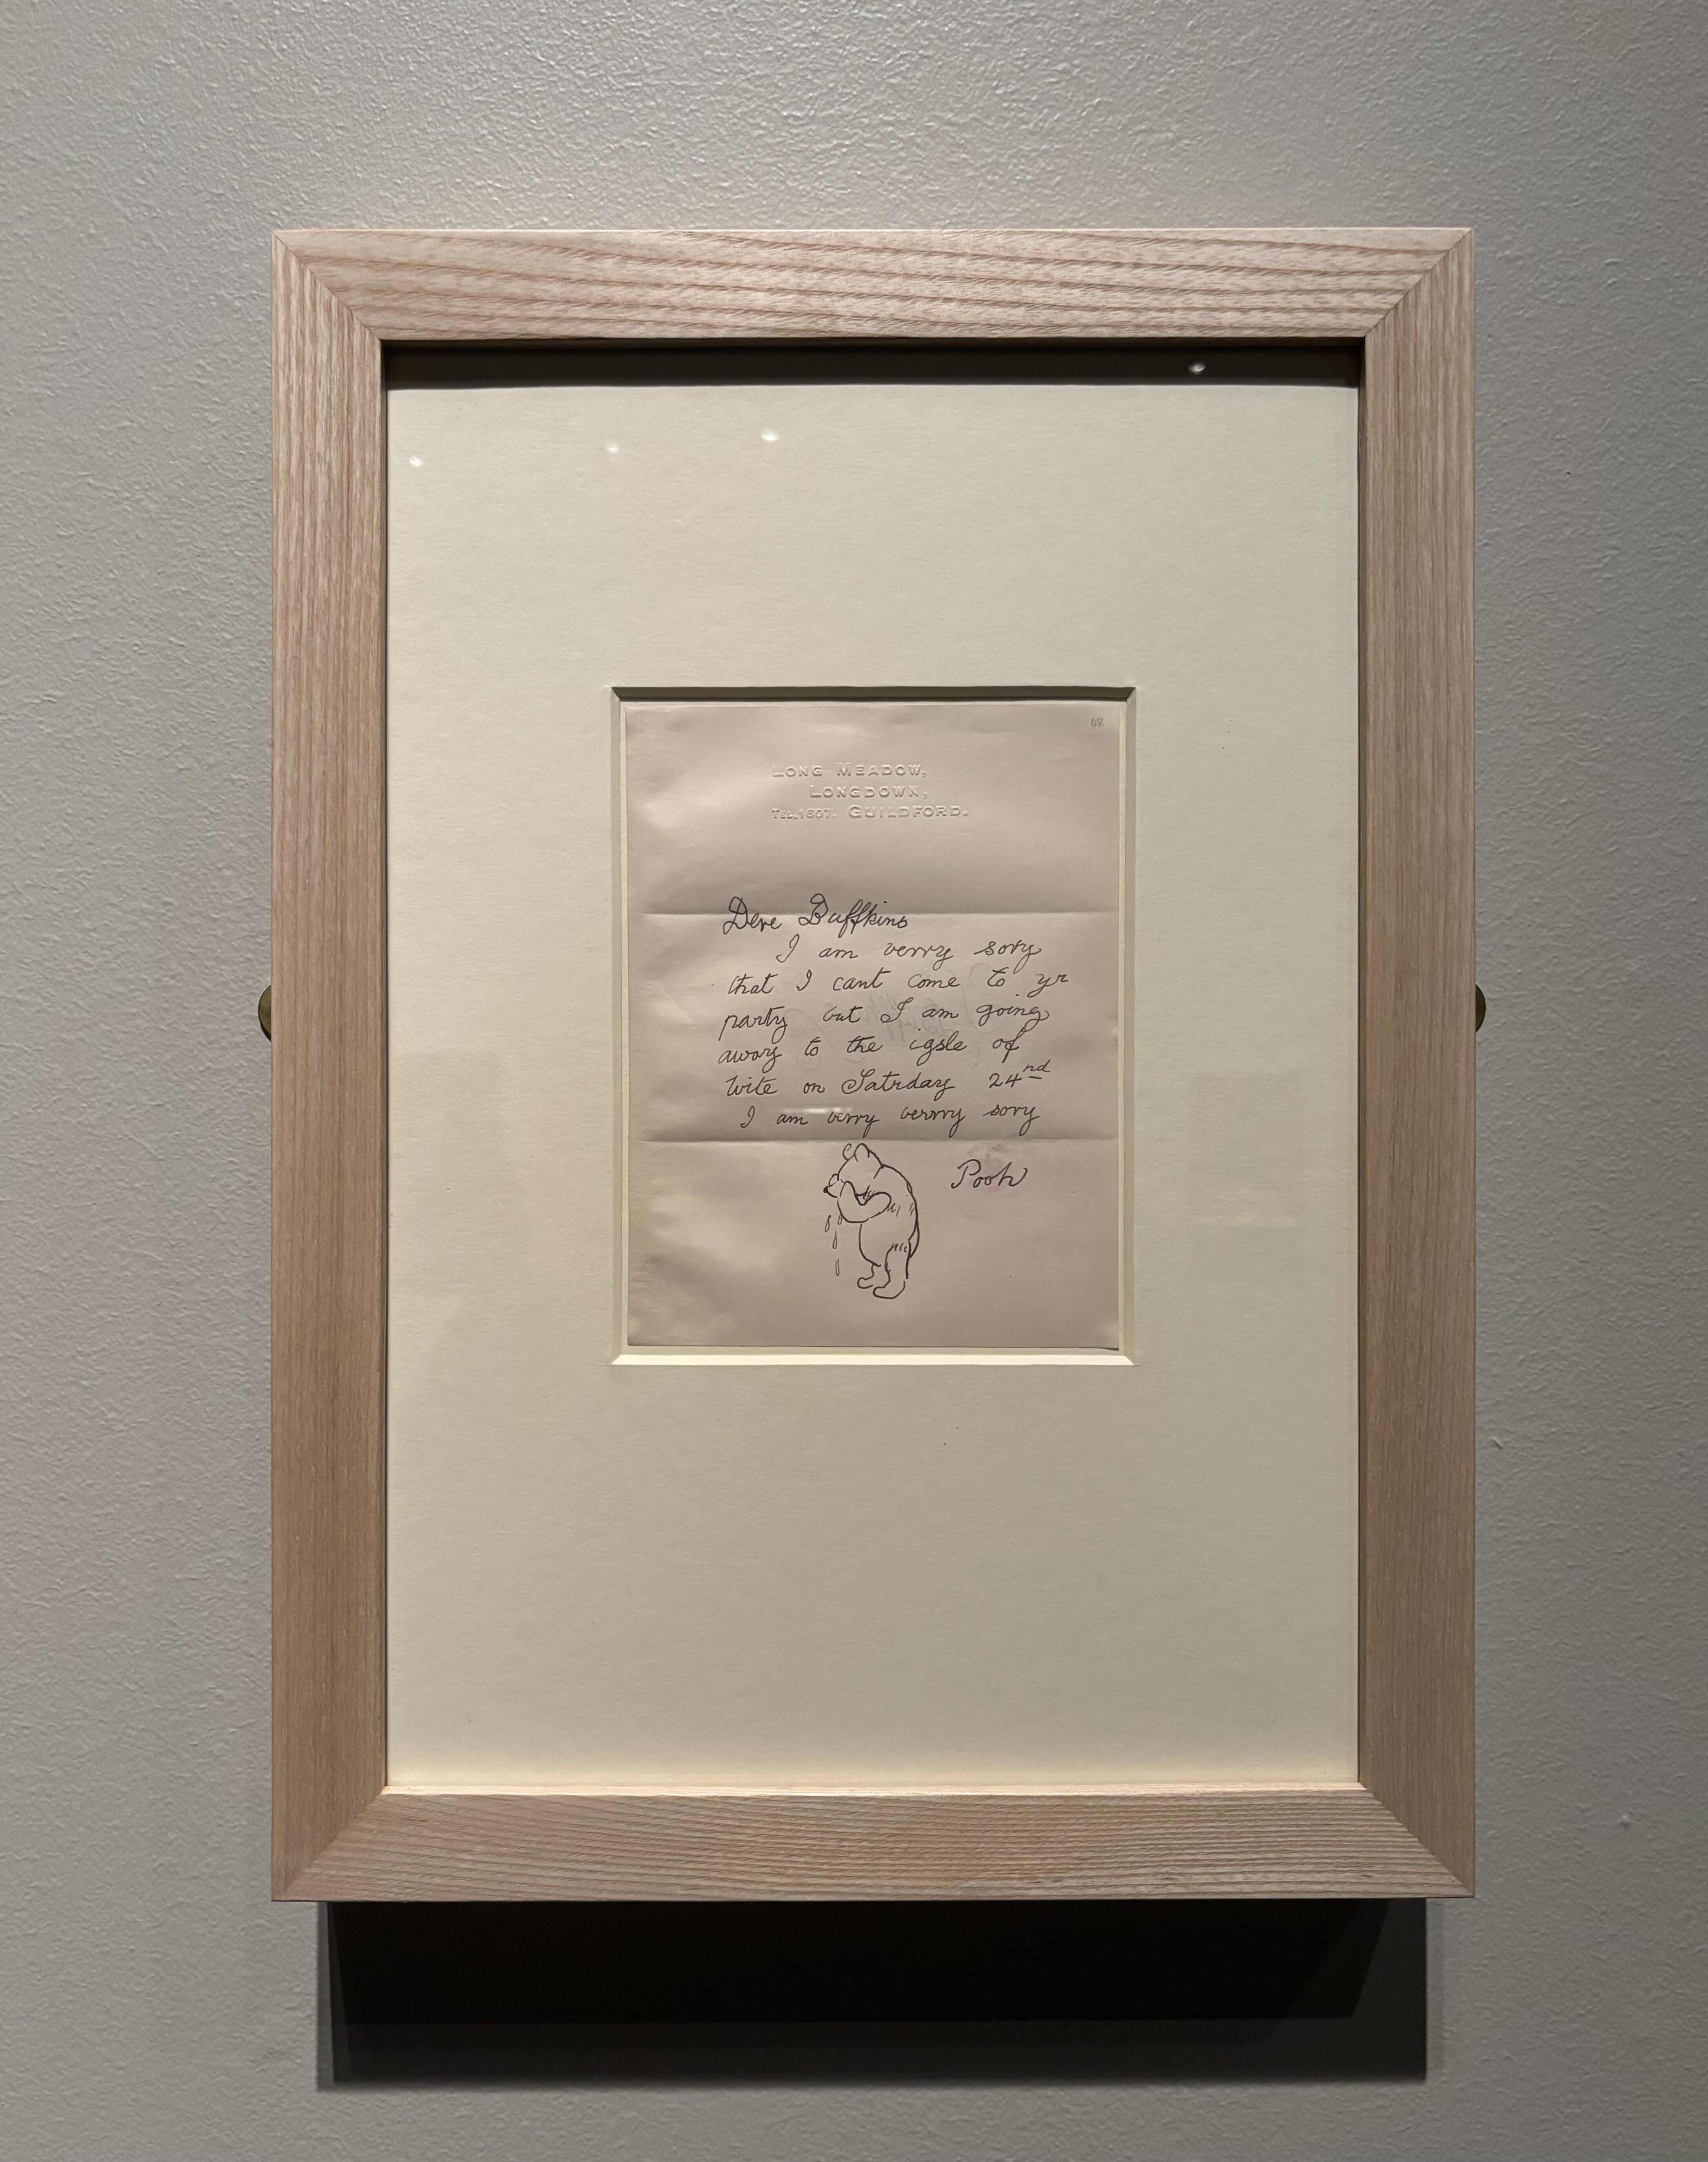 48
LONG MEADOW,
LONGDOWN,
TEL. 1607. GUILDFORD.
Dere Buffkins
I am verry sory
that I cant come to yr
party but I am going
away to the igsle of
Wite on Satrday 24nd
I am verry verrry sory
Pooh